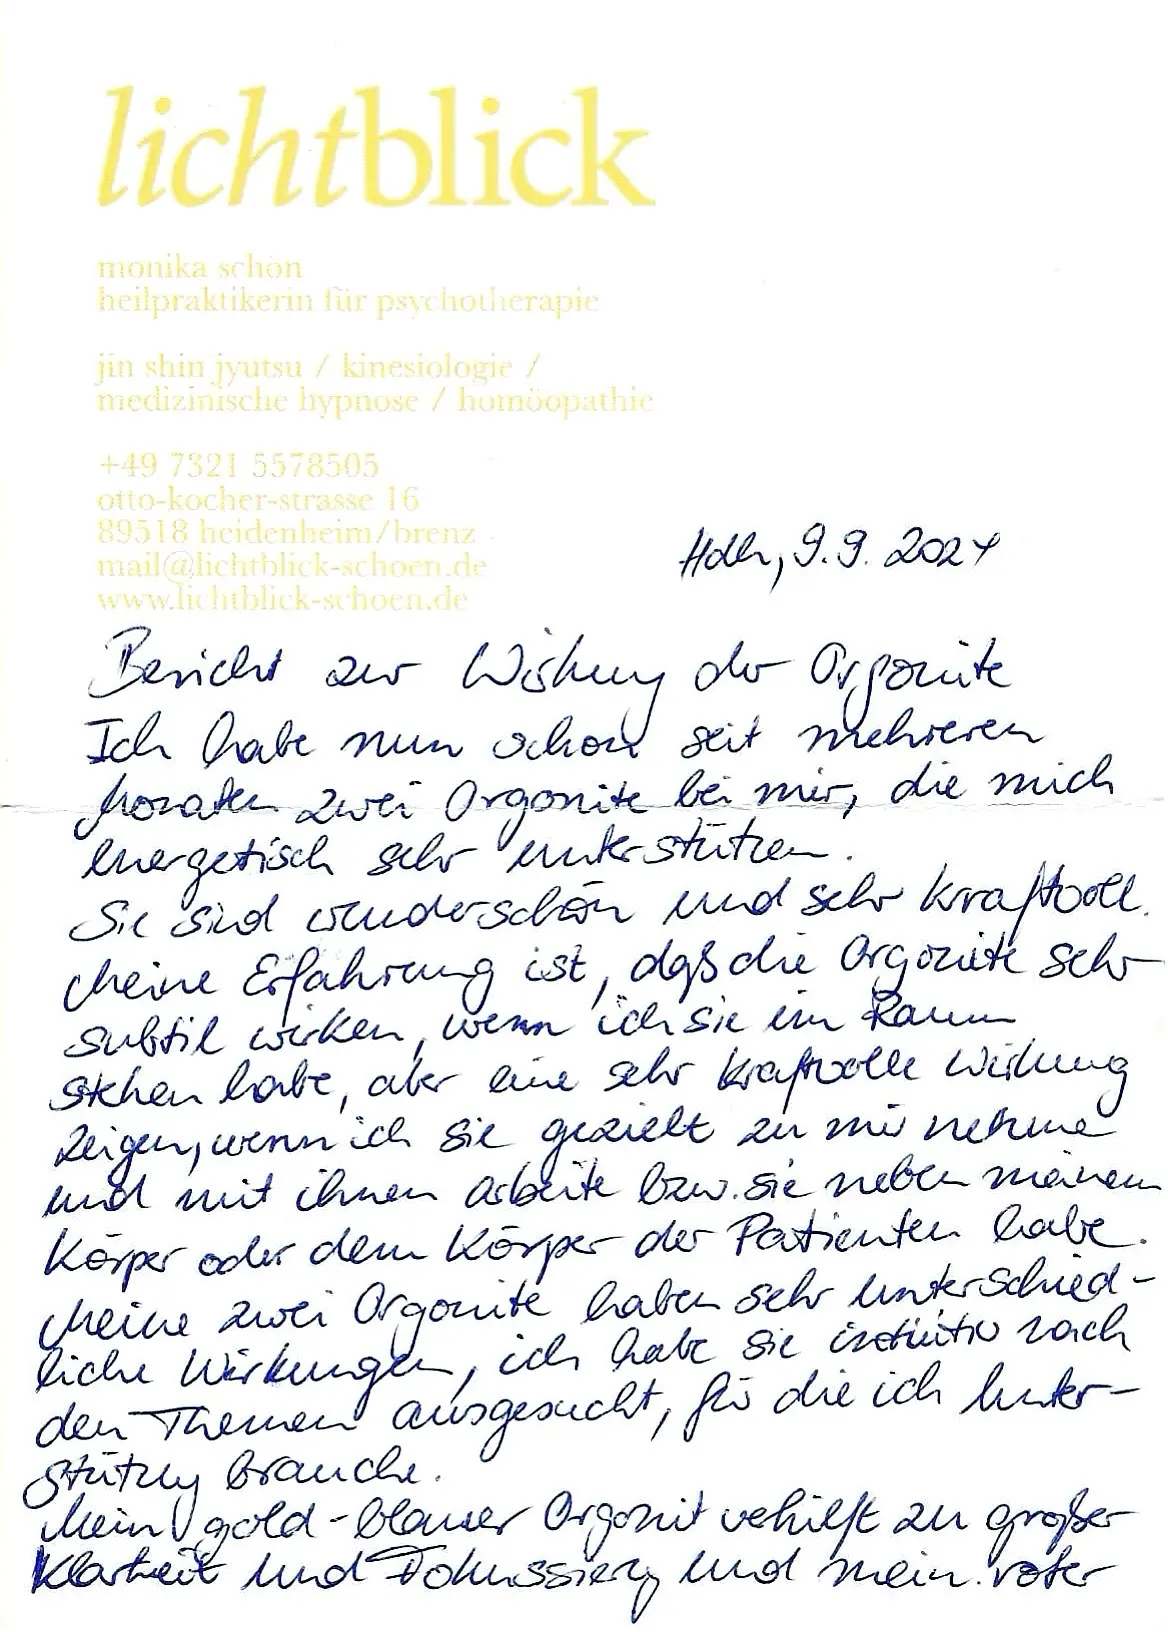 lichtblick
monika schön
heilpraktikerin für psychotherapie
jin shin jyutsu / kinesiologie /
medizinische hypnose / homöopathie
+49 7321 5578505
otto-kocher-strasse 16
89518 heidenheim/brenz
mail@lichtblick-schoen.de
www.lichtblick-schoen.de
Hdh, 9.9. 2024
Bericht zur Wirkung der Orgonite
Ich habe nun schon seit mehreren
Monaten zwei Orgonite bei mir, die mich
energetisch sehr unterstützen.
Sie sind wunderschön und sehr kraftvoll.
Meine Erfahrung ist, daß die Orgonite sehr
subtil wirken, wenn ich sie im Raum
stehen habe, aber eine sehr kraftvolle Wirkung
zeigen, wenn ich sie gezielt zu mir nehme
und mit ihnen arbeite bzw. sie neben meinem
Körper oder dem Körper der Patienten habe.
Meine zwei Orgonite haben sehr unterschied-
liche Wirkungen, ich habe sie intuitiv nach
den Themen ausgesucht, für die ich Unter-
stützung brauche.
Mein gold-blauer Orgonit verhilft zu großer
Klarheit und Fokussierung und mein roter